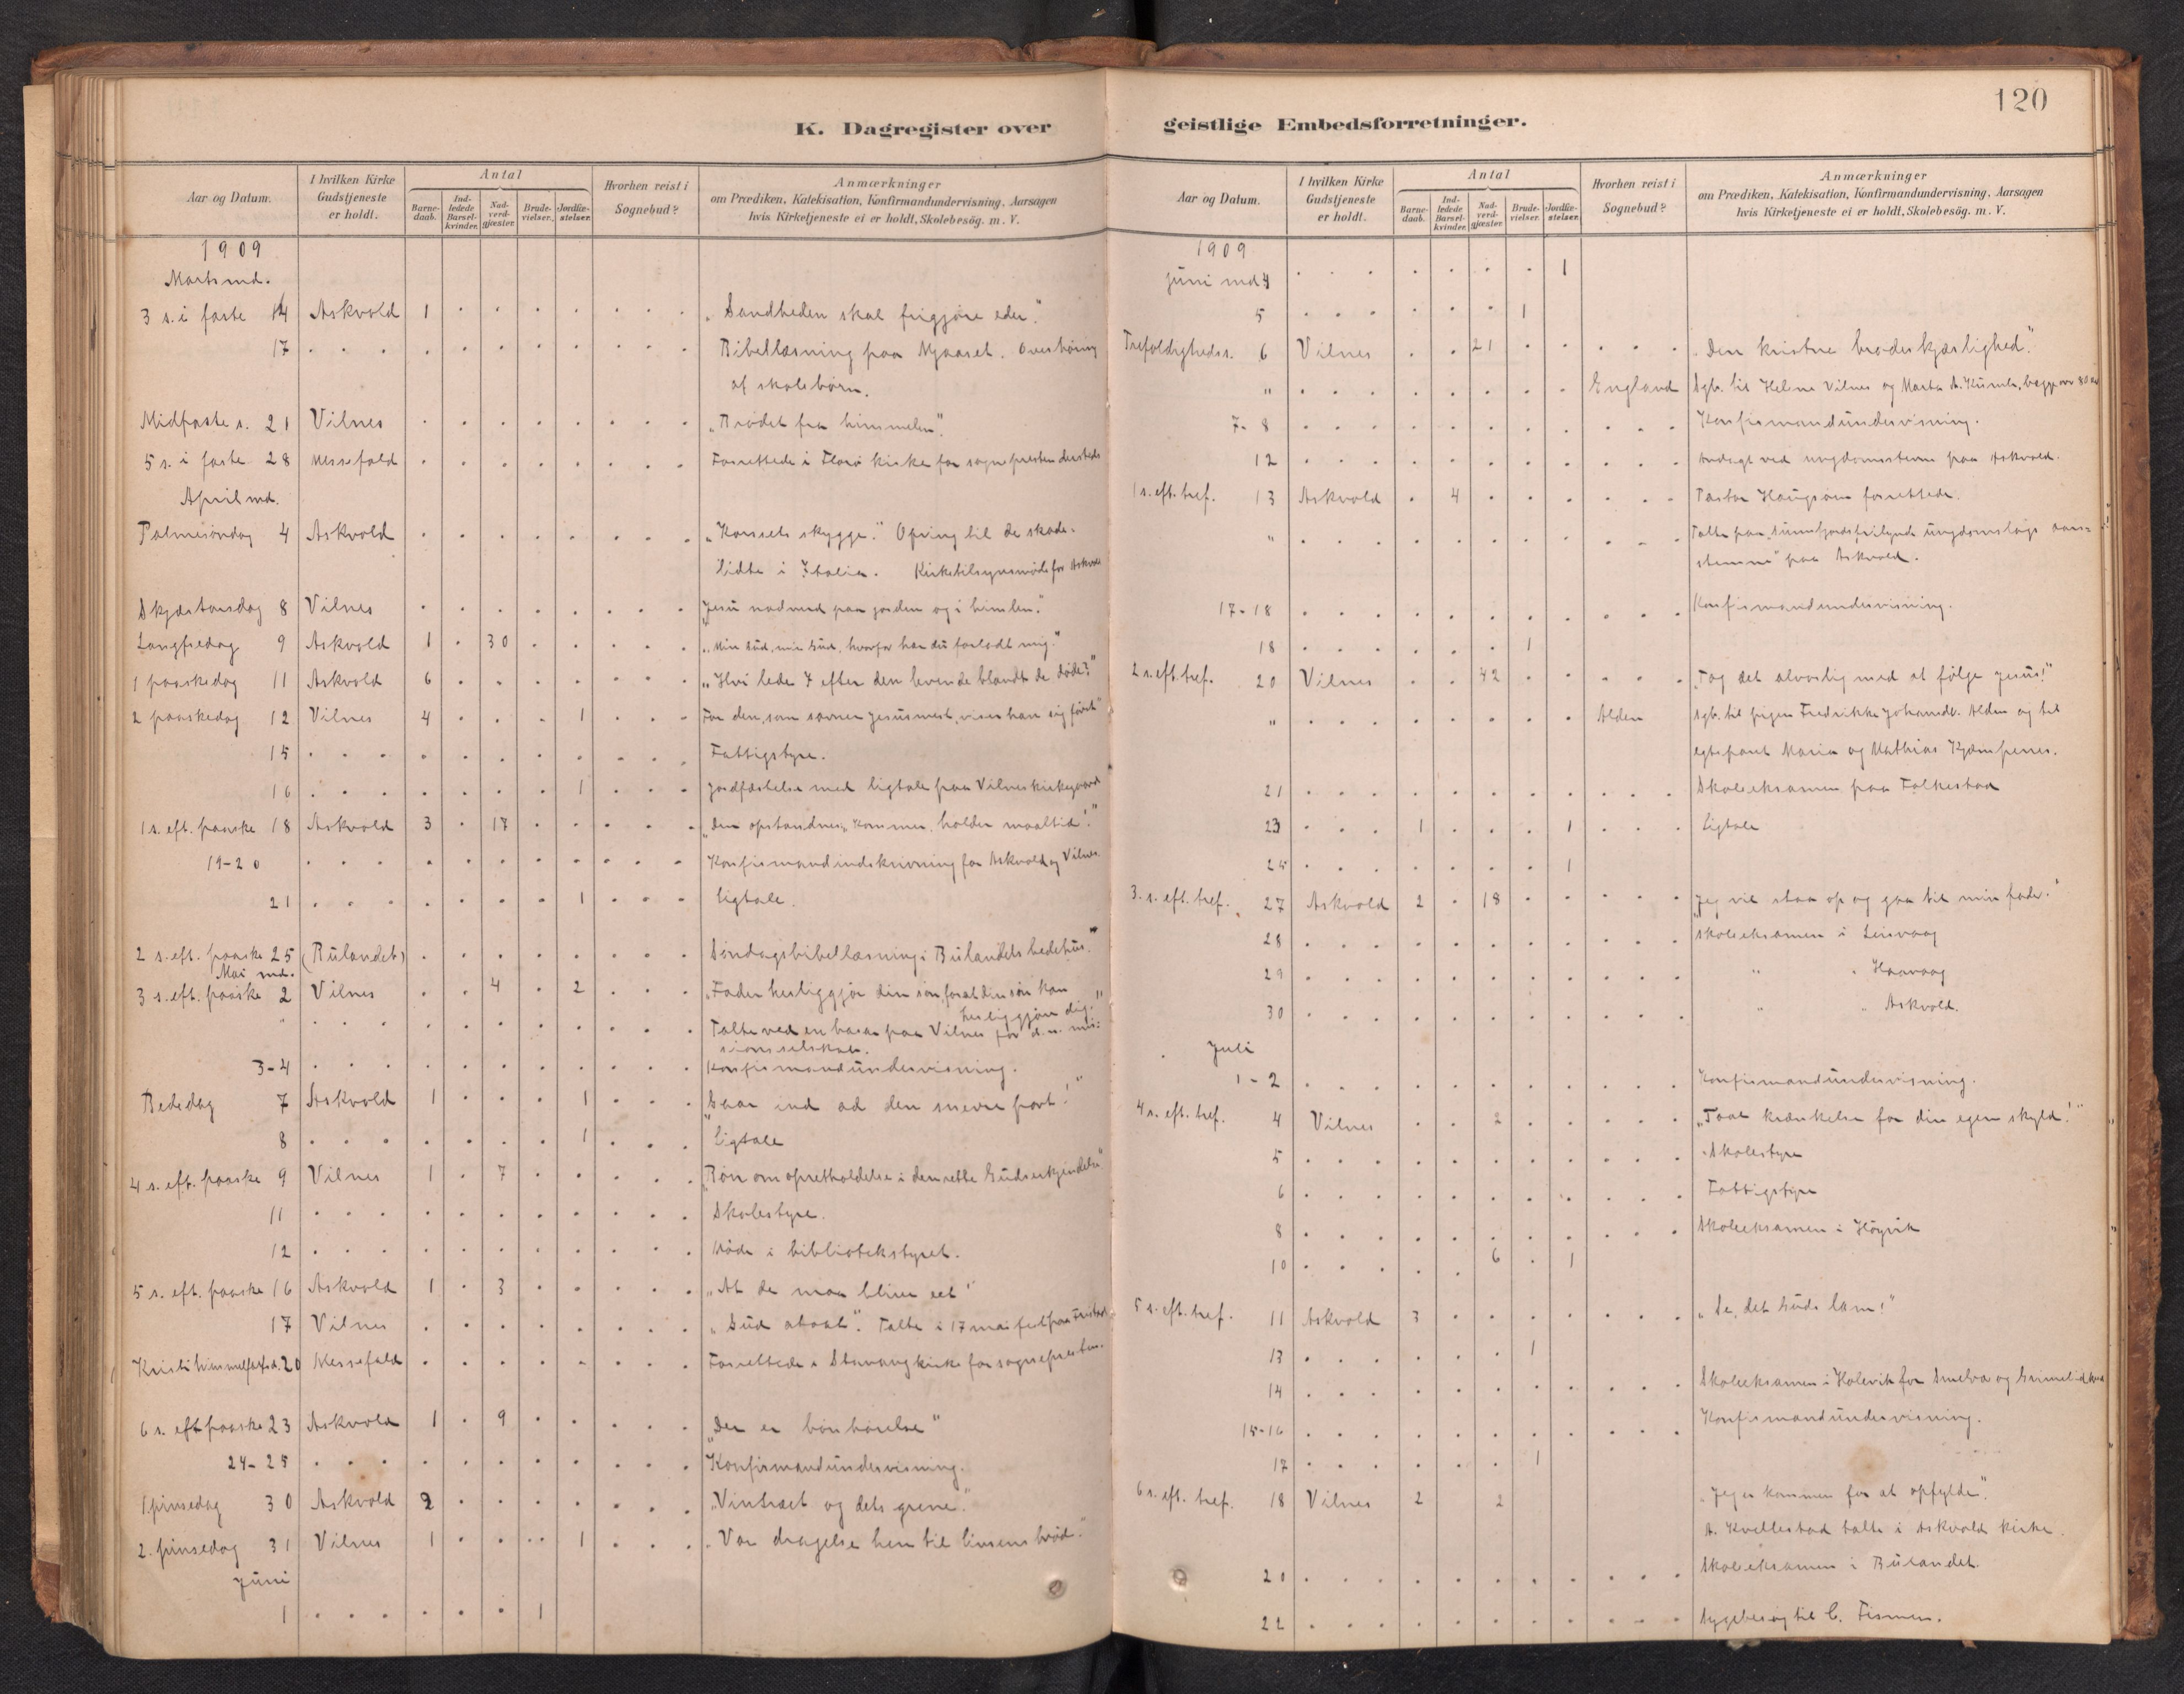 120
K. Dagregister over
Aar og Datum.
I hvilken Kirke Gudstjeneste er holdt.
Antal
Barnedaab.
Indledede Barselkvinder.
Nadverdgjæster.
Brudevielser.
Jordfæstelser.
Hvorhen reist i Sognebud?
Anmærkninger
om Prædiken, Katekisation, Konfirmandundervisning, Aarsagen
hvis Kirketjeneste ei er holdt, Skolebesög. m. V.
1909
Marts md.
3 s. i faste 14 Askvold 1 "Sandheden skal frigjøre eder."
17 Bibellæsning paa Mjaaset. Overhøring
af skolebørn.
Midfaste s. 21 Vilnes "Brødet fra himmelen".
5 s. i faste 28 Messefald Forrettede i Florø kirke for sognepresten dersteds
April md.
Palmesøndag 4 Askvold "Korsets skygge." Ofring til de skade-
lidte i Italien. Kirketilsynsmøde for Askvold
Skjærtorsdag 8 Vilnes "Jesu nadverd paa jorden og i himlen."
Langfredag 9 Askvold 1 30 "Min Gud, min Gud, hvorfor har du forladt mig."
1 paaskedag 11 Askvold 6 "Hvi lede I efter den levende blandt de døde?"
2 paaskedag 12 Vilnes 4 1 For den, som savner Jesus mest, viser han sig først"
15 Fattigstyre.
16 1 Jordfæstelse med ligtale paa Vilnes kirkegaard
1 s. eft. paaske 18 Askvold 3 17 "Den opstandne: "Kommer, holder maaltid"."
19-20 Konfirmandindskrivning for Askvold og Vilnes.
21 1 Ligtale.
2 s. eft. paaske 25 (Bulandet) Søndagsbibellæsning i Bulandets bedehus."
Mai md.
3 s. eft. paaske 2 Vilnes 4 2 "Fader herliggjør din søn, forat din søn kan
herliggjøre dig."
" Talte ved en basar paa Vilnes for d. n. mis-
sionsselskab.
3-4 Konfirmandundervisning.
Bededag 7 Askvold 1 1 "Gaar ind ad den snevre port!"
8 1 Ligtale
4 s. eft. paaske 9 Vilnes 1 7 "Bøn om opretholdelse i den rette Gudserkjendelse"
11 Skolestyre.
12 Møde i bibliotekstyret.
5 s. eft. paaske 16 Askvold 1 3 "At de maa blive eet"
17 Vilnes "Gud abaal". Talte i 17 mai fest paa
Kristi himmelfartsd. 20 Messefald Forrettede i Stavang kirke for sognepresten.
6 s. eft paaske 23 Askvold 1 9 "Der er bønhørelse"
24-25 Konfirmandundervisning.
1 pinsedag 30 Askvold 2 "Vintræet og dets grene."
2. pinsedag 31 Vilnes 1 1 "Vor dragelse hen til livsens brød."
Juni
1 1
geistlige Embedsforretninger.
Aar og Datum.
I hvilken Kirke Gudstjeneste er holdt.
Antal
Barnedaab.
Indledede Barselkvinder.
Nadverdgjæster.
Brudevielser.
Jordfæstelser.
Hvorhen reist i Sognebud?
Anmærkninger
om Prædiken, Katekisation, Konfirmandundervisning, Aarsagen
hvis Kirketjeneste ei er holdt, Skolebesög. m. V.
1909
Juni md 4 1
5 1
Trefoldigheds s. 6 Vilnes 21 "Den kristne broderkjærlighed."
" England Sgb. til Helene Vilnes og Marta A. Kumle, begge over 80 aar
7-8 Konfirmandundervisning.
12 Andagt ved ungdomsstevne paa Askvold.
1 s. eft. tref. 13 Askvold 4 Pastor Haugsøen forrettede.
" Talte paa "Sunnfjords frilynde ungdomslags aars-
stemne" paa Askvold.
17-18 Konfirmandundervisning.
18 1
2 s. eft. tref. 20 Vilnes 42 "Tag det alvorlig med at følge Jesus!"
" Alden Sgb. til pigen Fredrikke Johannesd. Alden og til
egtepart Maria og Mathias Kjempenes.
21 Skoleeksamen paa Folkestad
23 1 1 Ligtale
25 1
3. s. eft. tref. 27 Askvold 2 18 "Jeg vil staa op og gaa til min fader."
28 Skoleeksamen i Leirvaag
29 " " Haavaag
30 " " Askvold.
Juli
1-2 Konfirmandundervisning.
4 s. eft. tref. 4 Vilnes 2 "Taal krænkelse for din egen skyld!"
5 Skolestyre
6 Fattigstyre
8 Skoleeksamen i Høyvik
10 6 1
5 s. eft. tref. 11 Askvold 3 "Se, det Guds lam!"
13 1
14 Skoleeksamen i Holevik for Smelva og Grimelid kreds
15-16 Konfirmandundervisning.
17 1
6 s. eft. tref. 18 Vilnes 2 2 "Jeg er kommen for at opfylde".
A. Kvellestad talte i Askvold kirke.
20 Skoleeksamen i Bulandet.
22 Sygebesøg til C. Fismen.